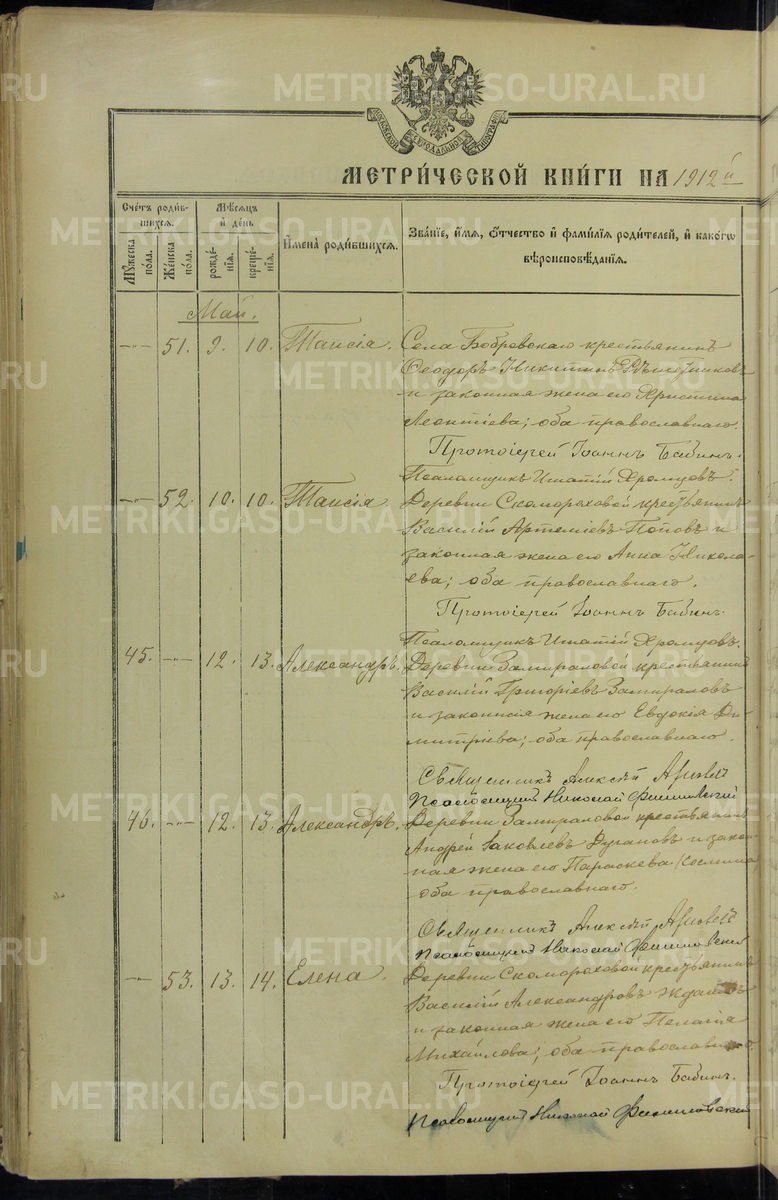 METRIKI.GASO-URAL.RU
МОСКОВСКОЙ СѴНОДАЛЬНОЙ ТИПОГРАФІИ
МЕТРИ́ЧЕСКОЙ КНИ́ГИ НА 1912й
Сче́тъ роди́в-
шихся.
Мѣ́сяцъ
и҆ де́нь
И҆мена̀ роди́вшихся.
Зва́нїе, и҆́мя, ѻ҆́тчество и҆ фами́лїя роди́телей, и҆ како́гѡ
вѣроисповѣ́данїя.
Мꙋ́жеска
по́ла.
Же́нска
по́ла.
рожде́-
нїя.
креще́-
нїя.
Май.
—„— 51. 9. 10. Таисія. Села Бобровскаго крестьянинъ
Ѳеодоръ Никитинъ
и законная жена его Христина
Леонтіева; оба православнаго.
Протоіерей Іоаннъ Бабинъ.
Псаломщикъ Ипатій Хромцовъ.
—„— 52. 10. 10. Таисія Деревни Скомороховой крестьянинъ
Василій Артеміевъ Поповъ и
законная жена его Анна Никола-
ева; оба православнаго.
Протоіерей Іоаннъ Бабинъ.
Псаломщикъ Ипатій Хромцовъ.
45. —„— 12. 13. Александръ. Деревни Замираловой крестьянинъ
Василій Григоріевъ Замираловъ
и законная жена его Евдокія Ди-
митріева; оба православнаго.
Священникъ Алексѣй
Псаломщикъ Николай
46. —„— 12. 13. Александръ. Деревни Замираловой крестьянинъ
Андрей Іаковлевъ Дугановъ и закон-
ная жена его Параскева Космина
оба православнаго.
Священникъ Алексѣй
Псаломщикъ Николай
—„— 53. 13. 14. Елена. Деревни Скомороховой крестьянинъ
Василій Александровъ Ждановъ
и законная жена его Пелагія
Михайлова; оба православнаго.
Протоіерей Іоаннъ Бабинъ.
Псаломщикъ Николай